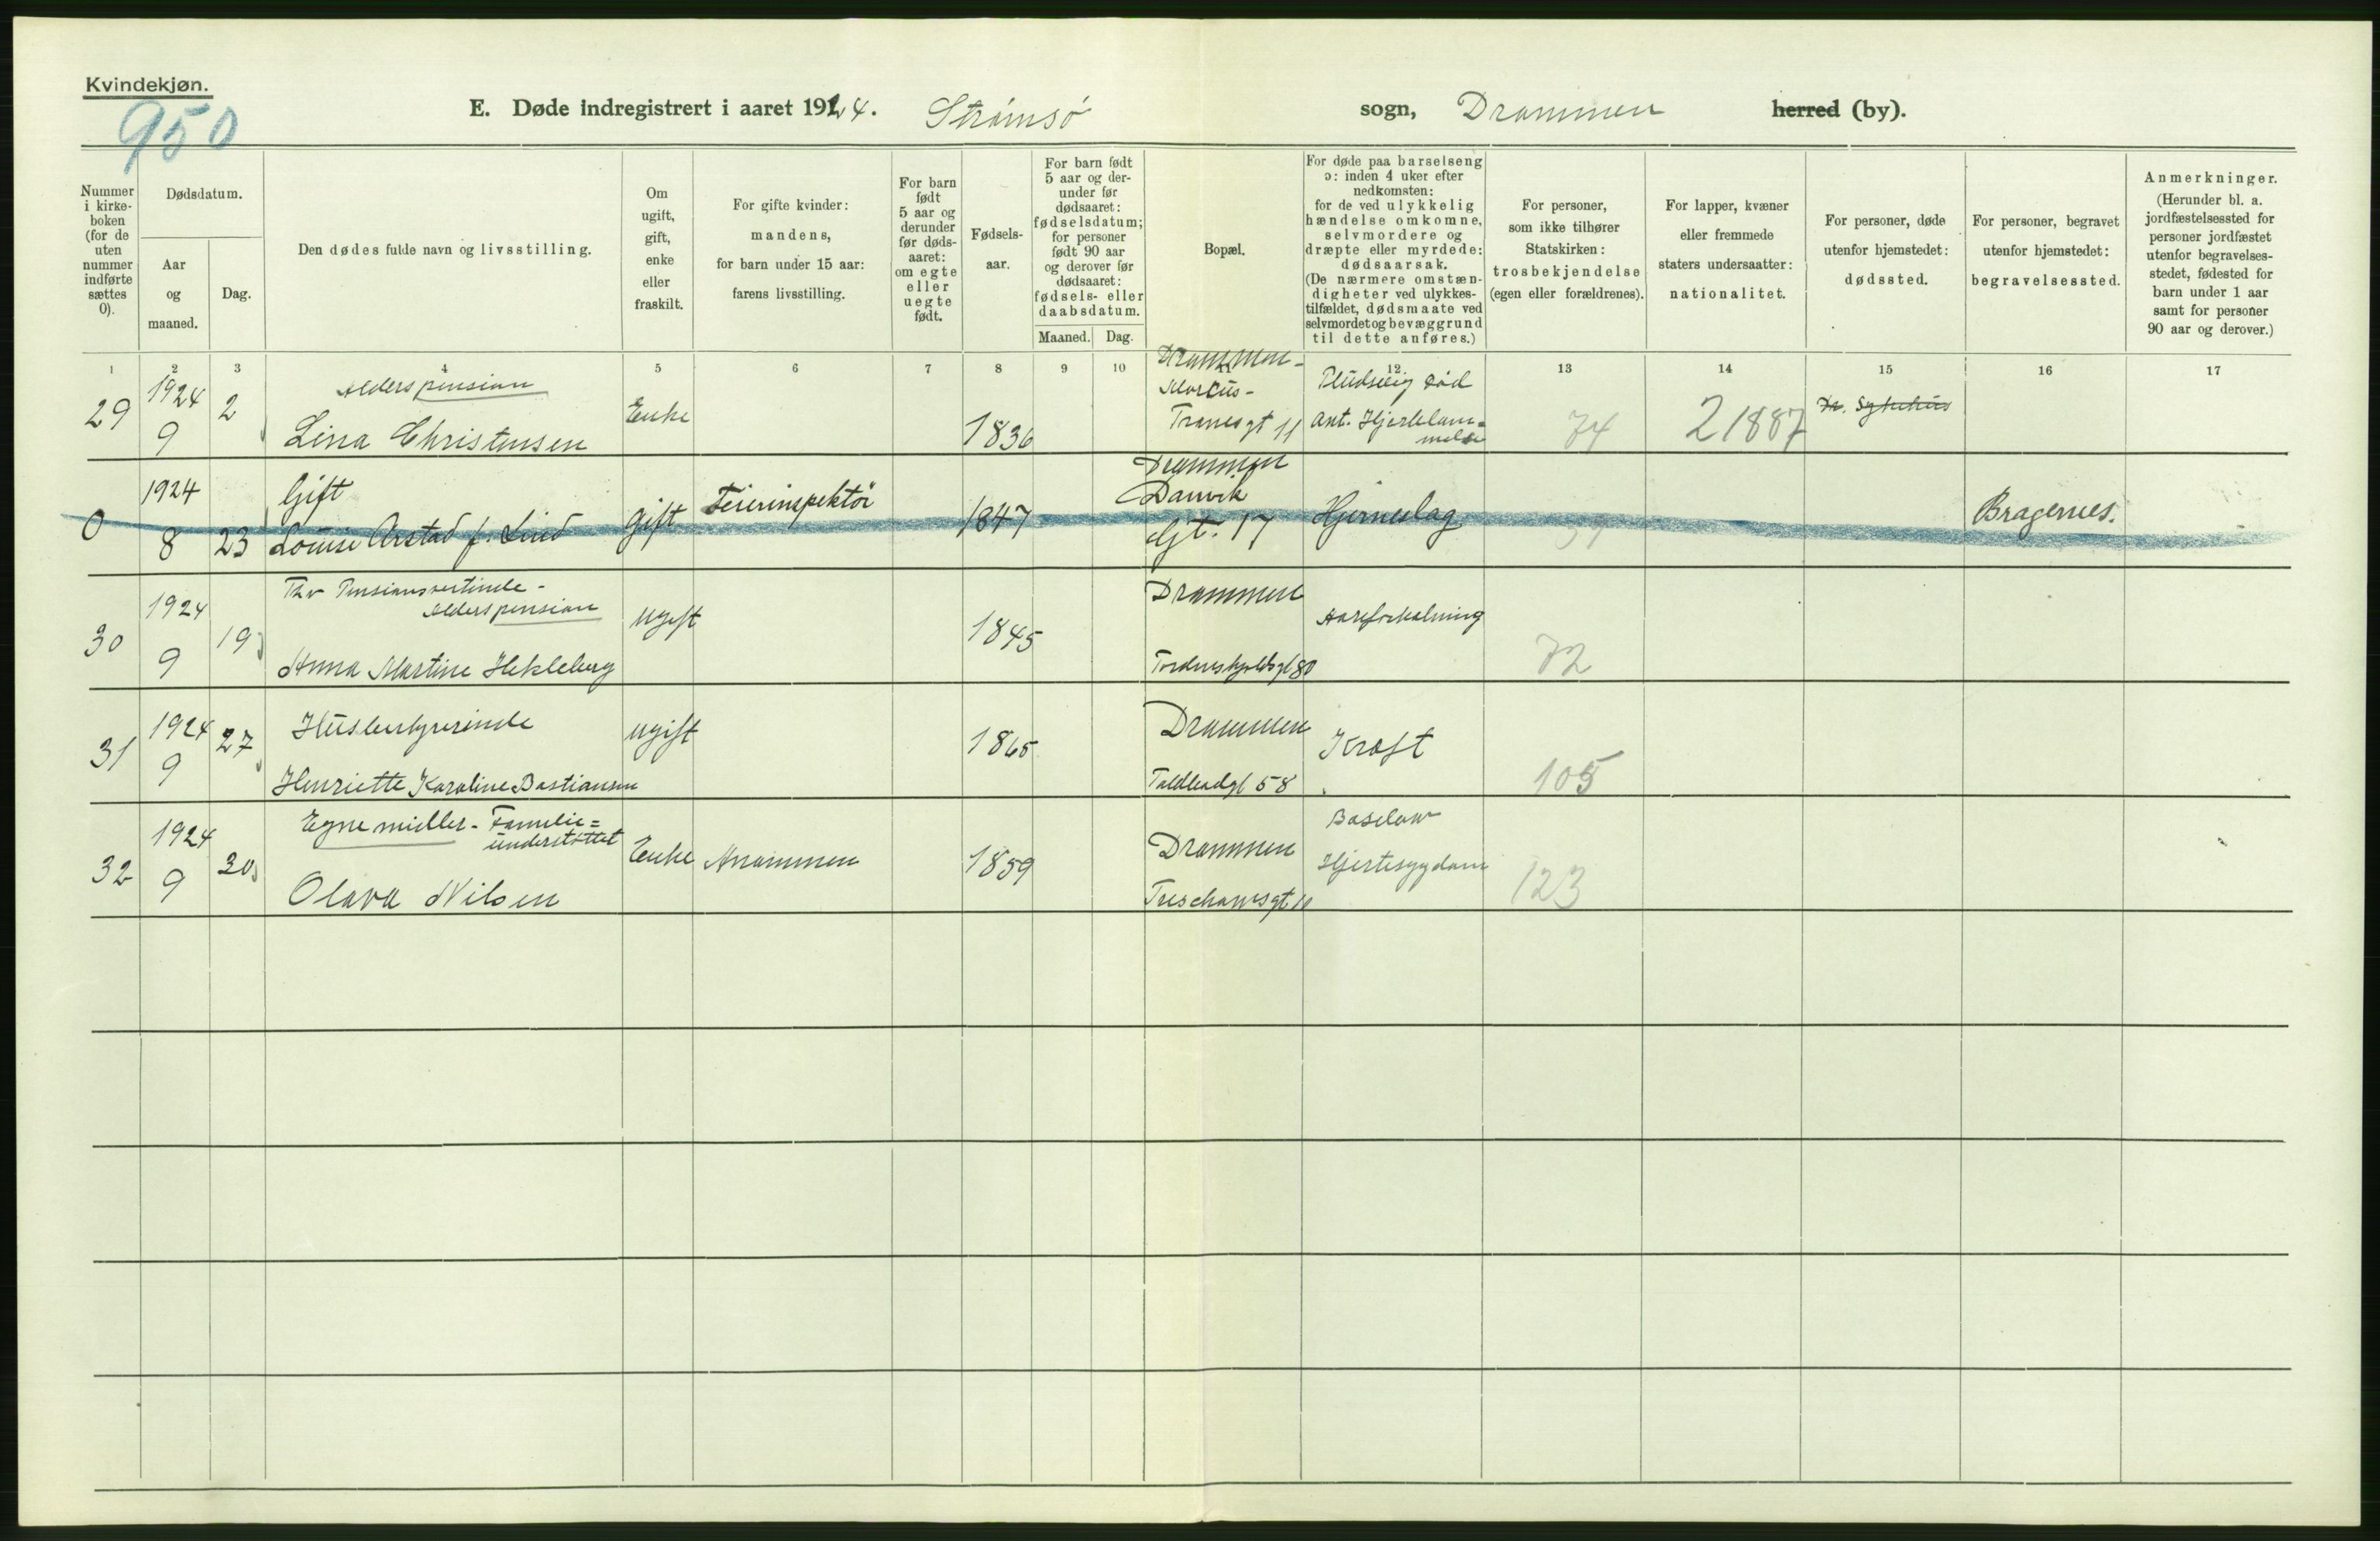 Kvindekjøn.
950
E. Døde indregistrert i aaret 1924. Strømsø sogn, Drammen herred (by).
Nummer i kirke-boken (for de uten nummer indførte sættes 0).
Dødsdatum.
Aar og maaned.
Dag.
Den dødes fulde navn og livsstilling.
Om ugift, gift, enke eller fraskilt.
For gifte kvinder: mandens, for barn under 15 aar: farens livsstilling.
For barn født 5 aar og derunder før døds-aaret: om egte eller uegte født.
Fødsels-aar.
For barn født 5 aar og der-under før dødsaaret: fødselsdatum; for personer født 90 aar og derover før dødsaaret: fødsels- eller daabsdatum.
Maaned. Dag.
Bopæl.
For døde paa barselseng ɔ: inden 4 uker efter nedkomsten: for de ved ulykkelig hændelse omkomne, selvmordere og dræpte eller myrdede: dødsaarsak. (De nærmere omstæn-digheter ved ulykkes-tilfældet, dødsmaate ved selvmordet og bevæggrund til dette anføres.)
For personer, som ikke tilhører Statskirken: trosbekjendelse (egen eller forældrenes).
For lapper, kvæner eller fremmede staters undersaatter: nationalitet.
For personer, døde utenfor hjemstedet: dødssted.
For personer, begravet utenfor hjemstedet: begravelsessted.
Anmerkninger. (Herunder bl. a. jordfæstelsessted for personer jordfæstet utenfor begravelses-stedet, fødested for barn under 1 aar samt for personer 90 aar og derover.)
1 2 3 4 5 6 7 8 9 10 12 13 14 15 16 17
29 1924 9 2 Alderspension Lina Christensen Enke 1836 Drammen - Marcus - Tranesgt 11 Pludselig død Ant. Hjertelam=melse 74 21887 Dr. Sykehus
0 1924 8 23 Gift Louise Arstad f. Lind Gift Feierinspektör 1847 Drammen Danvik Gt. 17 Hjerneslag Bragernes.
30 1924 9 19 Pensionsvertinde - Alderspension Anna Martine Hekleberg Ugift 1845 Drammen Tordenskjoldsgt 80 Aareforkalkning 72
31 1924 9 27 Husbestyrerinde Henriette Karoline Bastiansen Ugift 1865 Drammen Toldbodgt 58 Kræft 105
32 1924 9 30 Egne midler - Familie=understöttet Olava Nilsen Enke 1859 Drammen Treschowsgt 10 Basedow Hjertesygdom 123